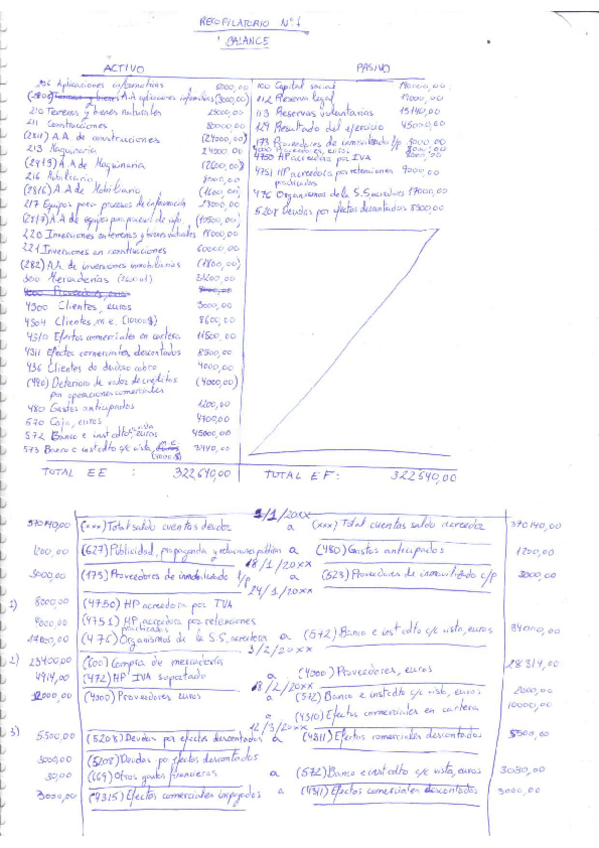 RECOPILATORIO Nº1
BALANCE
ACTIVO PASIVO
206 Aplicaciones informáticas
A.A aplicaciones informáticas (3000,00)
210 Terrenos y bienes naturales
211 Construcciones 80000,00
(2811) A.A. de construcciones (24000,00)
213 Maquinaria
(2813) A.A de Maquinaria (2600,00)
216 Mobiliario
(2816) A.A de Mobiliario (1600,00)
217 Equipos para procesos de información
(2817) A.A de equipos para proceso de info. (10500,00)
220 Inversiones en terrenos y bienes naturales
221 Inversiones en construcciones 60000,00
(282) A.A. de inversiones inmobiliarias (1800,00)
300 Mercaderías
4300 Clientes, euros 3000,00
4304 Clientes, m.e. (10000$) 8600,00
4310 Efectos comerciales en cartera
4311 Efectos comerciales descontados 8500,00
436 Clientes de dudoso cobro 4000,00
(490) Deterioro de valor de creditos (4000,00)
por operaciones comerciales
480 Gastos anticipados 1200,00
570 Caja, euros
572 Banco e inst cdto vista, euros 45000,00
573 Banco e inst cdto c/c vista, m.e.
TOTAL EE : 322640,00
100 Capital social
112 Reserva legal
113 Reservas voluntarias 15140,00
129 Resultado del ejercicio 45000,00
173 Proveedores de inmovilizado l/p 3000,00
4750 HP acreedora por IVA 8000,00
4751 HP acreedora por retenciones 9000,00
practicadas
476 Organismos de la S.S acreedores 17000,00
5208 Deudas por efectos descontados 8500,00
TOTAL EF : 322640,00
1/1/20xx
370140,00 (xxx) Total saldo cuentas deudor a (xxx) Total cuentas saldo acreedor 370140,00
1200,00 (627) Publicidad, propaganda y relaciones públicas a (480) Gastos anticipados 1200,00
18/1/20xx
3000,00 (173) Proveedores de inmovilizado l/p a (523) Proveedores de inmovilizado c/p 3000,00
24/1/20xx
1) 8000,00 (4750) HP acreedora por IVA
9000,00 (4751) HP acreedora por retenciones
practicadas
17000,00 (476) Organismos de la S.S. acreedora a (572) Banco e inst cdto c/c vista, euros 34000,00
3/2/20xx
2) 23400,00 (600) Compra de mercadería
4914,00 (472) HP IVA soportado a (4000) Proveedores, euros 28314,00
18/2/20xx
12000,00 (4000) Proveedores euros a (572) Banco e inst cdto c/c vista, euros 2000,00
(4310) Efectos comerciales en cartera 10000,00
12/3/20xx
3) 5500,00 (5208) Deudas por efectos descontados a (4311) Efectos comerciales descontados 5500,00
3000,00 (5208) Deudas por efectos descontados
30,00 (669) Otros gastos financieros a (572) Banco e inst cdto c/c vista, euros 3030,00
3000,00 (4315) Efectos comerciales impagados a (4311) Efectos comerciales descontados 3000,00